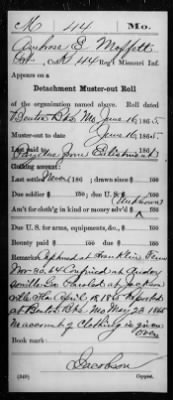 M 44 Mo.
Ambrose E. Moffett
Pvt, Co. K, 44 Reg't Missouri Inf.
Appears on a
Detachment Muster-out Roll
of the organization named above. Roll dated
Benton Bks Mo June 16, 1865.
Muster-out to date June 16, 1865.
Last paid to
time Enlistment
Clothing account:
Last settled Never, 186 ; drawn since $ 100
Due soldier $ 100 ; due U. S. $ 100
Am't for cloth'g in kind or money adv'd $ 100
Due U. S. for arms, equipments, &c., $ 100
Bounty paid $ 100 ; due $ 100
Remarks: Captured at Franklin Tenn
Nov 30, 64 Confined at Andersonville
Ga Paroled at
April 1865 Reported
at Benton Bks Mo May 28 1865
no account of clothing is given
over
Book mark:
Jacobson
(340) Copyist.